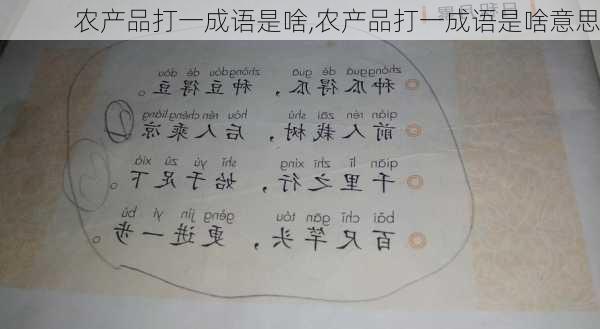 农产品打一成语是啥,农产品打一成语是啥意思
zhòngguā dé guā zhòngdòu dé dòu
种瓜得瓜，种豆得豆。
qián rén zāi shù hòu rén chéng liáng
前人栽树，后人乘凉。
qiān lǐ zhī xíng shǐ yú zú xià
千里之行，始于足下。
bǎi chǐ gān tóu gèng jìn yí bù
百尺竿头，更进一步。